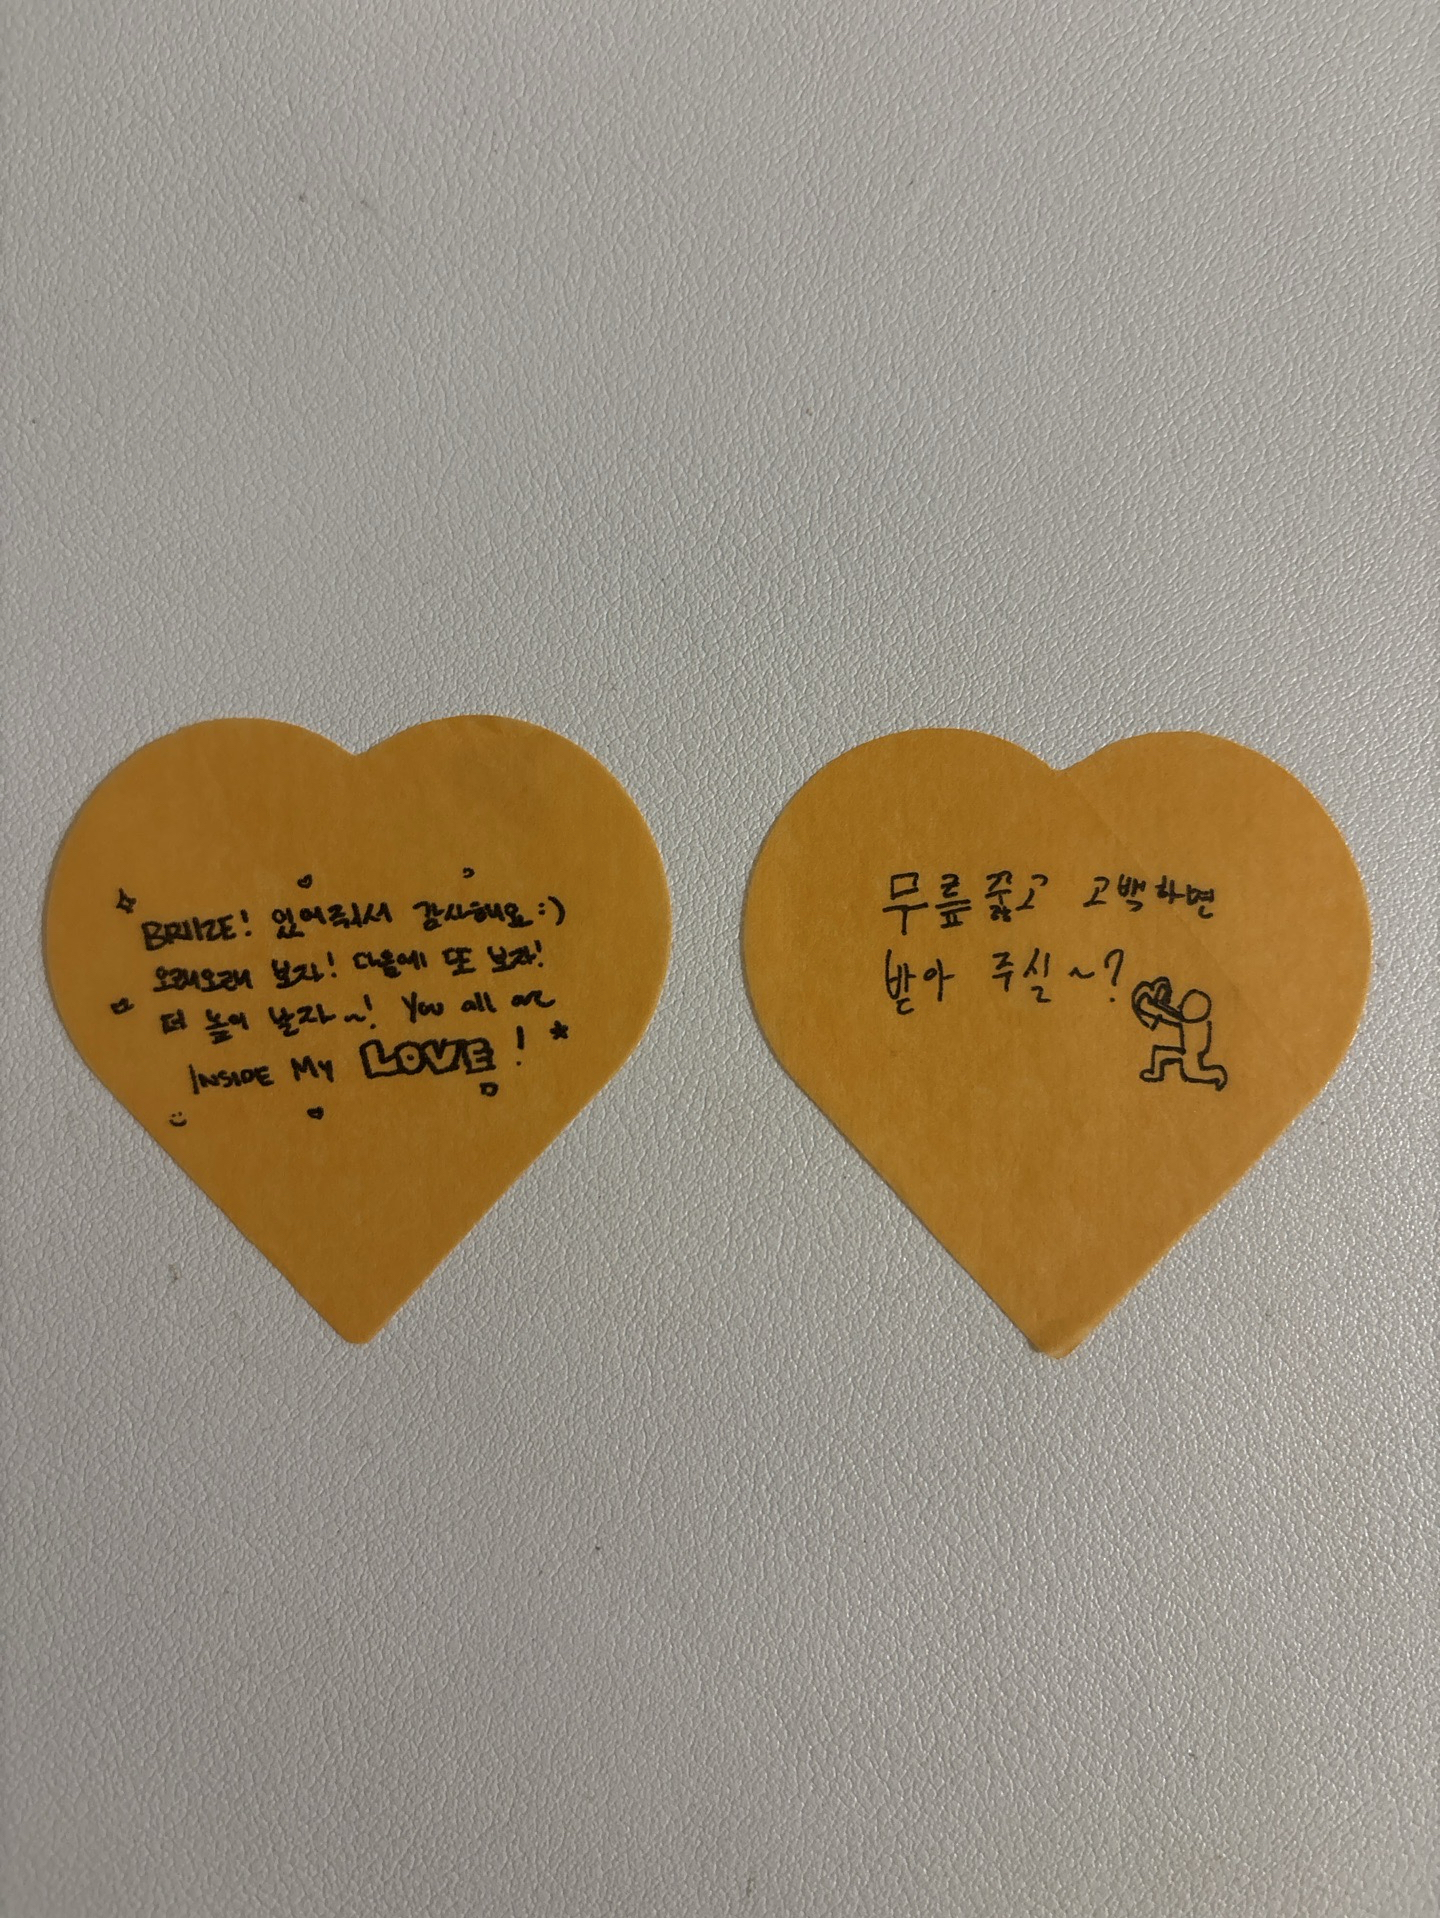 BRIIZE! 있어줘서 감사해요:)
오래오래 보자! 다음에 또 보자!
더 높이 날자~! You all are
INSIDE My LOVE!
무릎 꿇고 고백하면
받아 주실~?